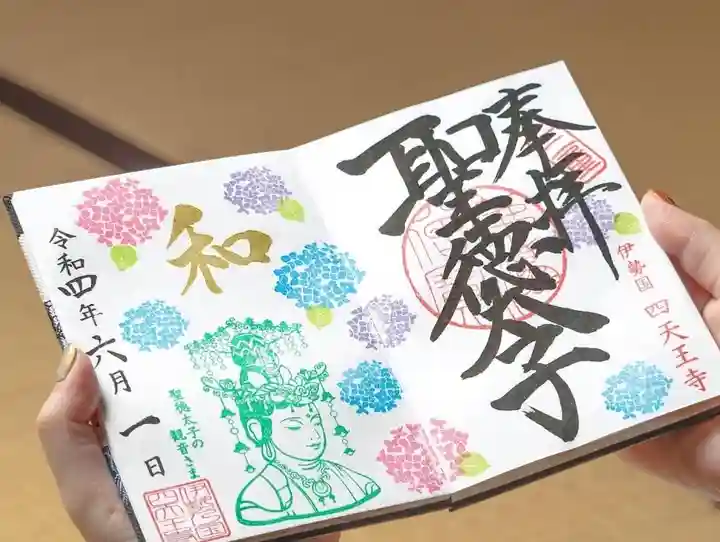 奉拝
聖徳太子
伊勢国 四天王寺
和
聖徳太子の
観音さま
令和四年六月一日